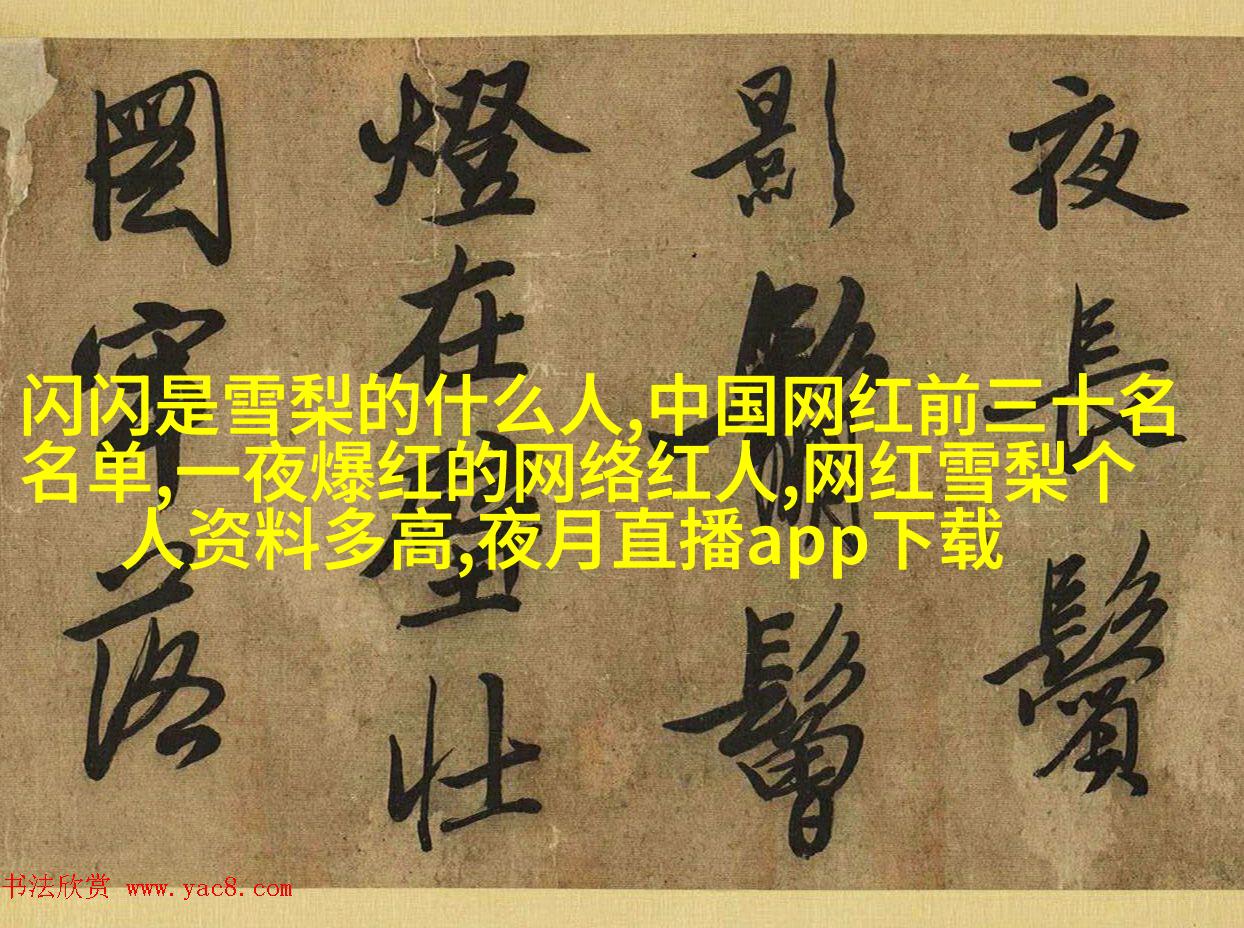 夜長鬢
影鬅鬙
燈在壁壮
圖牢落
闪闪是雪梨的什么人,中国网红前三十名
名单,一夜爆红的网络红人,网红雪梨个
人资料多高,夜月直播app下载
书法欣赏 www.yac8.com